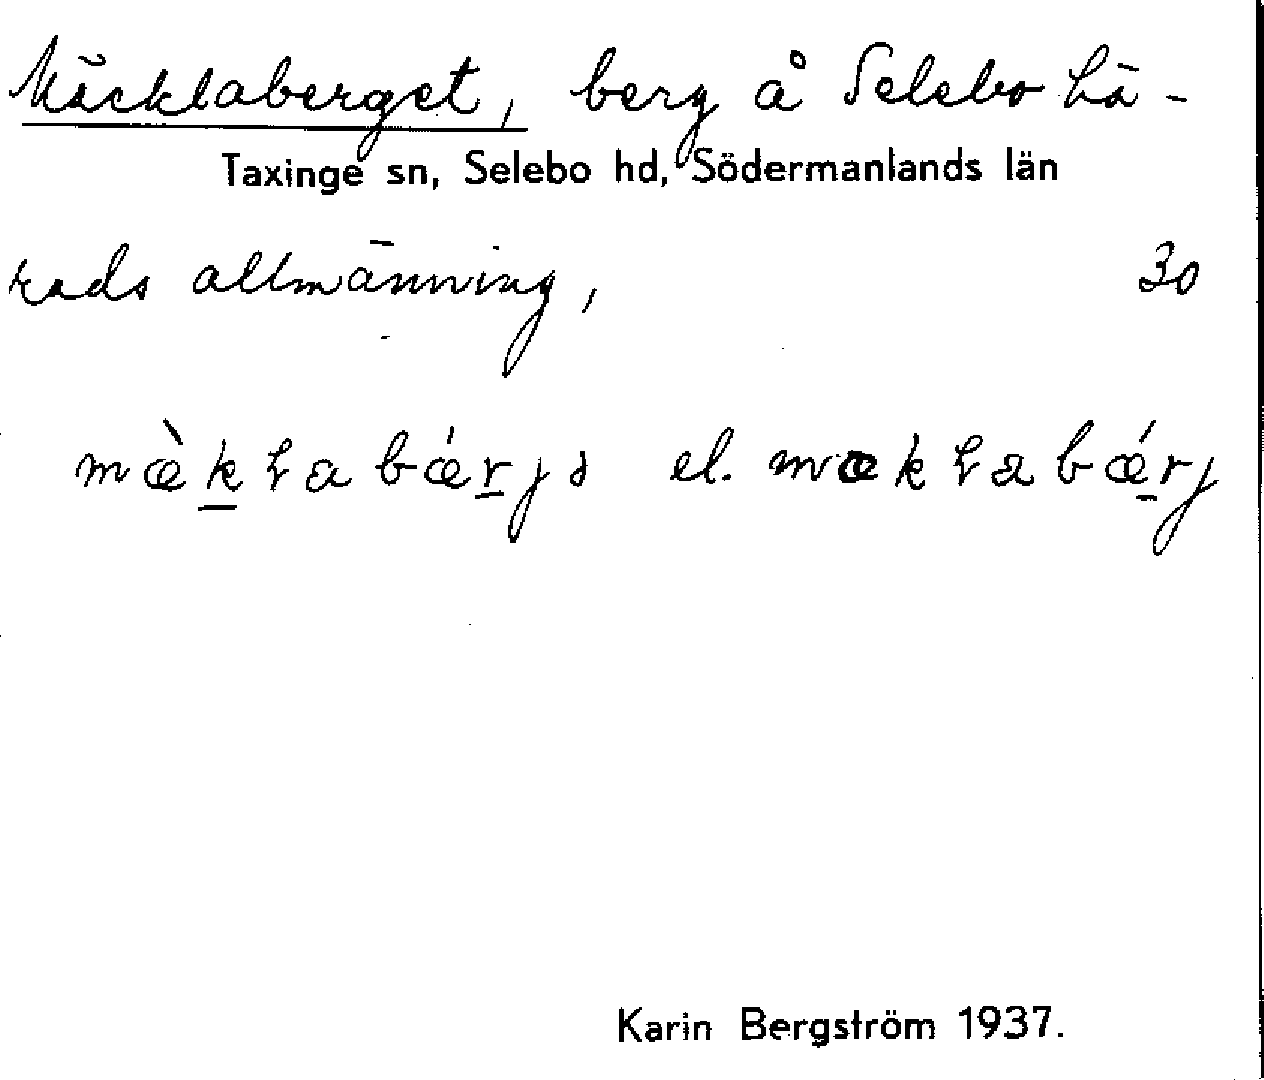 Mäcklaberget, berg å Selebo hä-
Taxinge sn, Selebo hd, Södermanlands län
rads allmänning, 30
el.
Karin Bergström 1937.